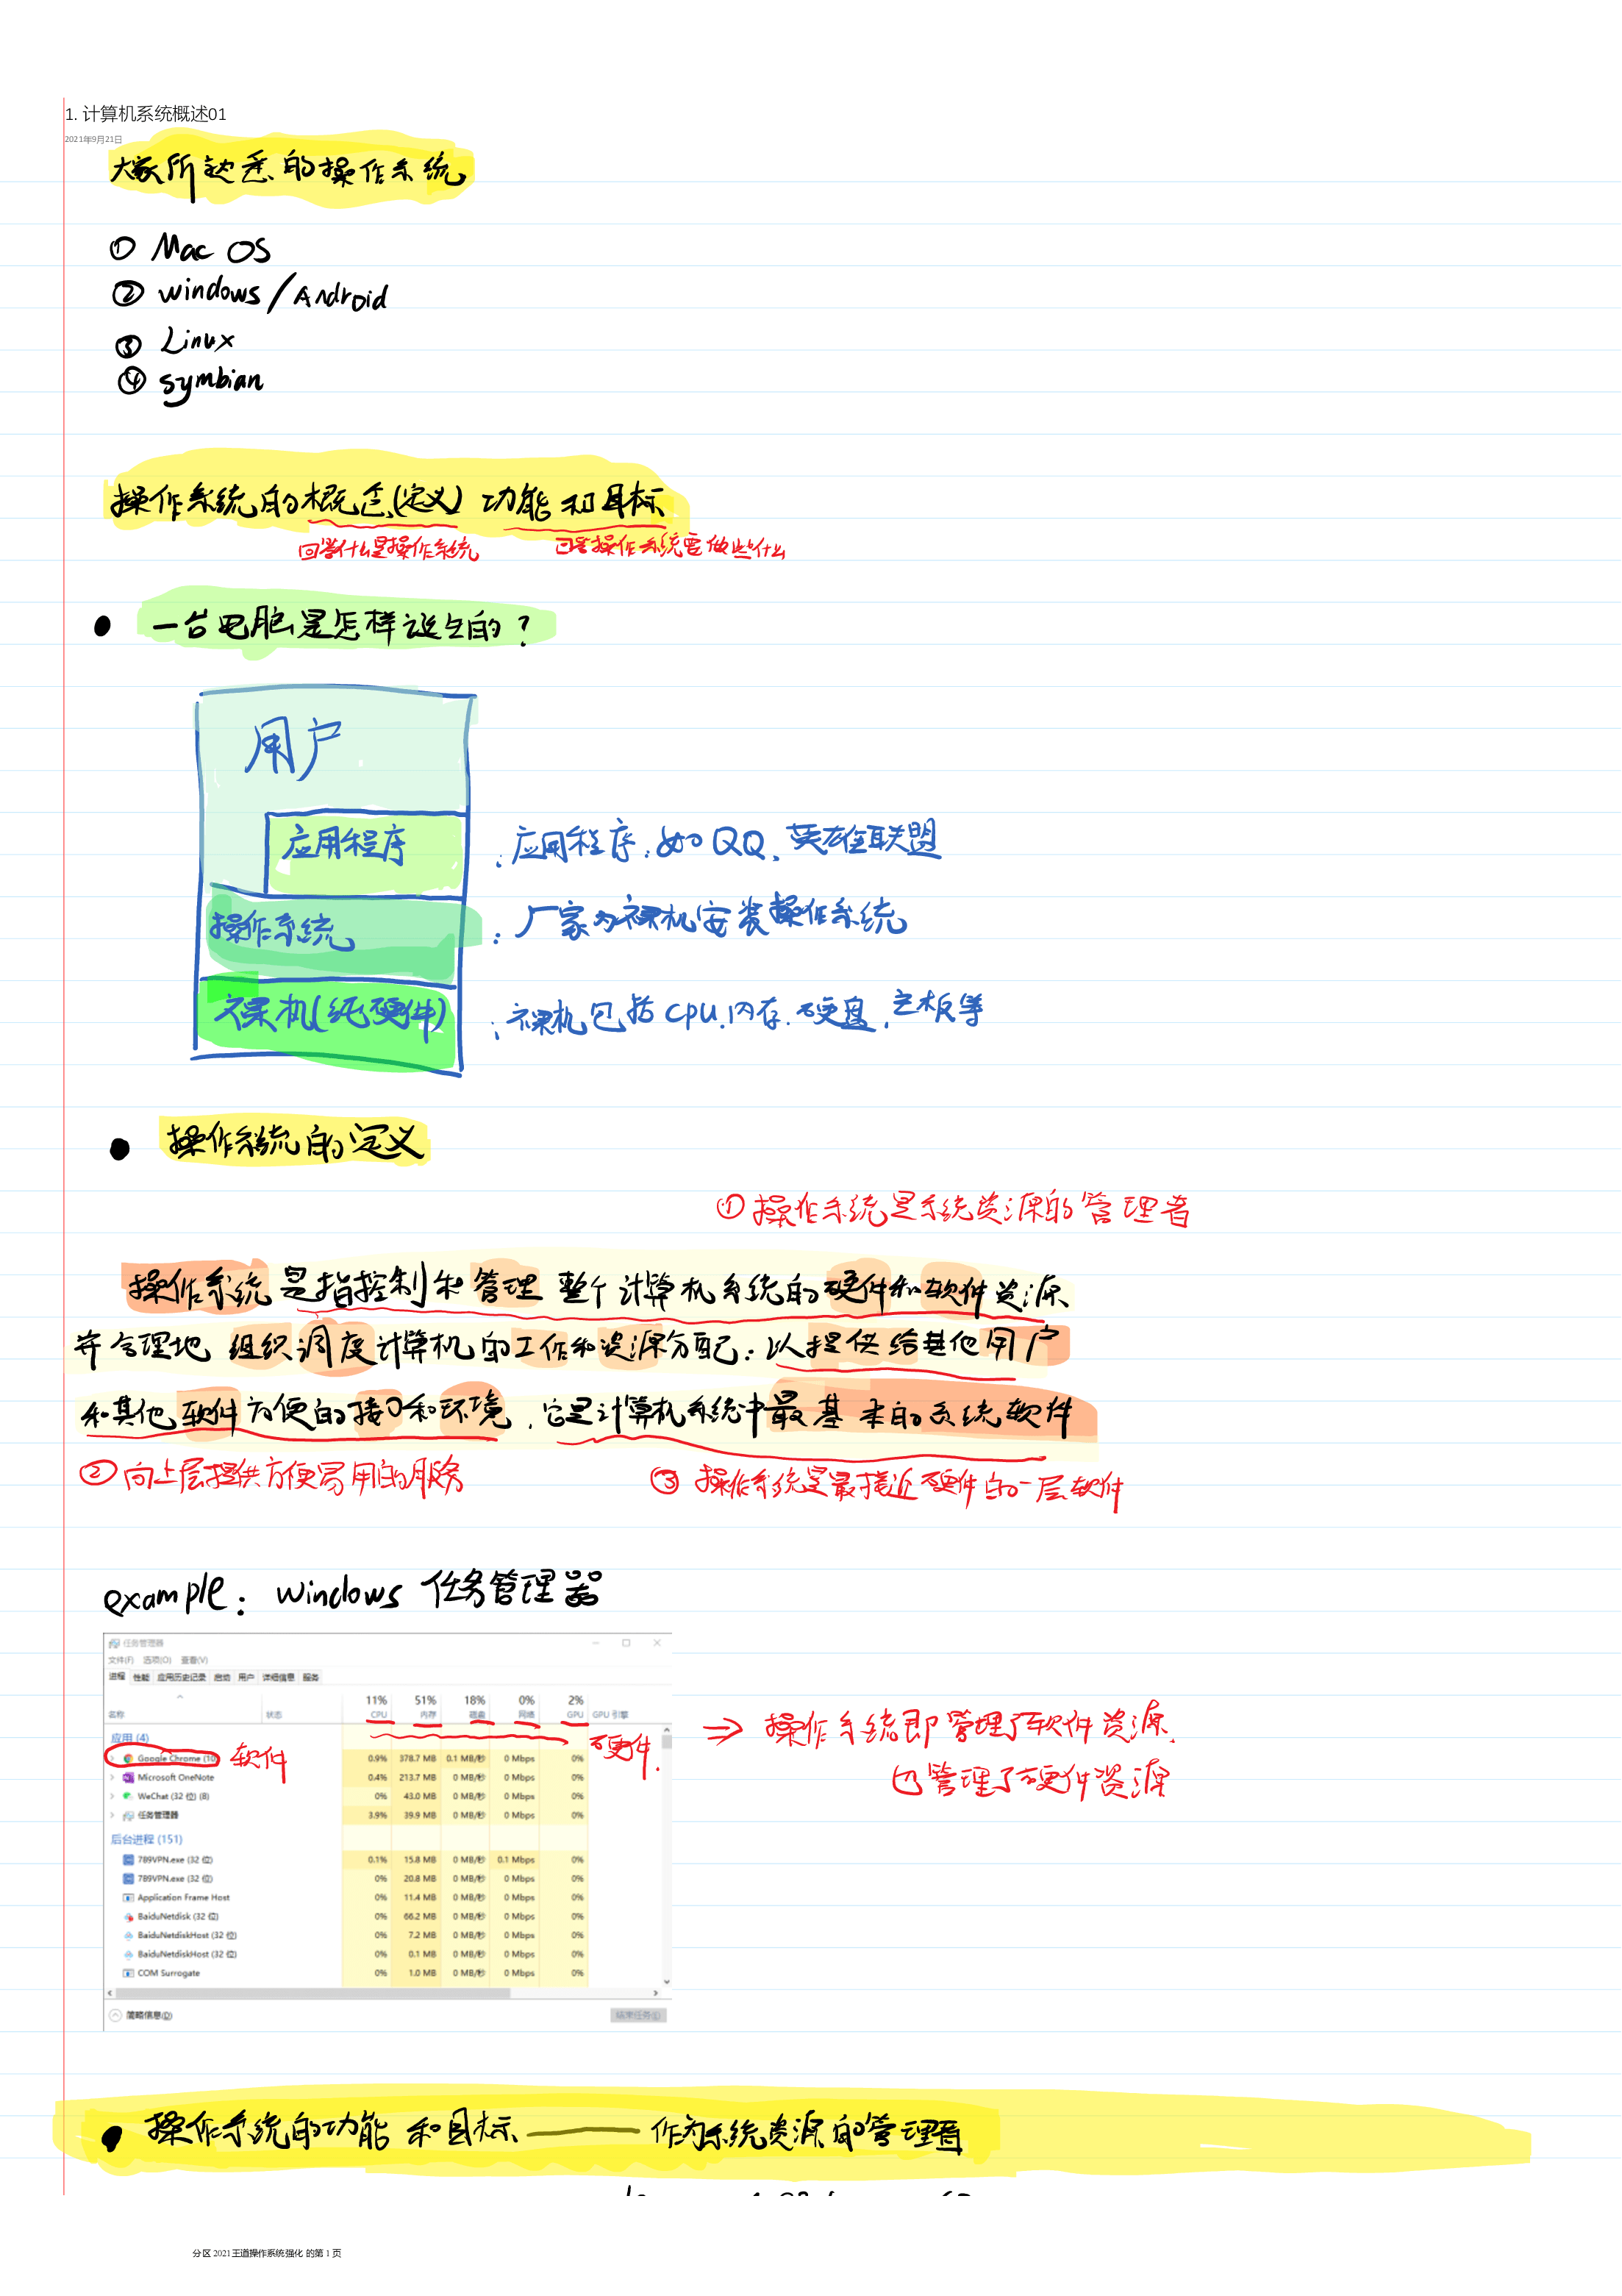 1. 计算机系统概述01
2021年9月21日
大家所熟悉的操作系统
① Mac OS
② windows/Android
③ Linux
④ symbian
操作系统的概念(定义) 功能和目标
回答什么是操作系统 回答操作系统要做些什么
● 一台电脑是怎样诞生的?
用户
应用程序 : 应用程序: 如QQ、英雄联盟
操作系统 : 厂家为裸机安装操作系统
裸机(纯硬件) : 裸机包括CPU.内存.硬盘.主板等
● 操作系统的定义
①操作系统是系统资源的管理者
操作系统是指控制和管理整个计算机系统的硬件和软件资源
并合理地 组织调度计算机的工作和资源分配. 以提供给其他用户
和其他软件方便的接口和环境, 它是计算机系统中最基本的系统软件
②向上层提供方便易用的服务 ③ 操作系统是最接近硬件的一层软件
example: windows 任务管理器
任务管理器
文件(F) 选项(O) 查看(V)
进程 性能 应用历史记录 启动 用户 详细信息 服务
11% 51% 18% 0% 2%
名称 状态 CPU 内存 磁盘 网络 GPU GPU 引擎
应用 (4)
Google Chrome (10) 0.9% 378.7 MB 0.1 MB/秒 0 Mbps 0%
软件
硬件.
Microsoft OneNote 0.4% 213.7 MB 0 MB/秒 0 Mbps 0%
WeChat (32 位) (8) 0% 43.0 MB 0 MB/秒 0 Mbps 0%
任务管理器 3.9% 39.9 MB 0 MB/秒 0 Mbps 0%
后台进程 (151)
789VPN.exe (32 位) 0.1% 15.8 MB 0 MB/秒 0.1 Mbps 0%
789VPN.exe (32 位) 0% 20.8 MB 0 MB/秒 0 Mbps 0%
Application Frame Host 0% 11.4 MB 0 MB/秒 0 Mbps 0%
BaiduNetdisk (32 位) 0% 66.2 MB 0 MB/秒 0 Mbps 0%
BaiduNetdiskHost (32 位) 0% 7.2 MB 0 MB/秒 0 Mbps 0%
BaiduNetdiskHost (32 位) 0% 0.1 MB 0 MB/秒 0 Mbps 0%
COM Surrogate 0% 1.0 MB 0 MB/秒 0 Mbps 0%
简略信息(D) 结束任务(E)
⇒ 操作系统即管理了软件资源.
也管理了硬件资源
● 操作系统的功能和目标 —— 作为系统资源的管理者
分区 2021王道操作系统强化 的第 1 页